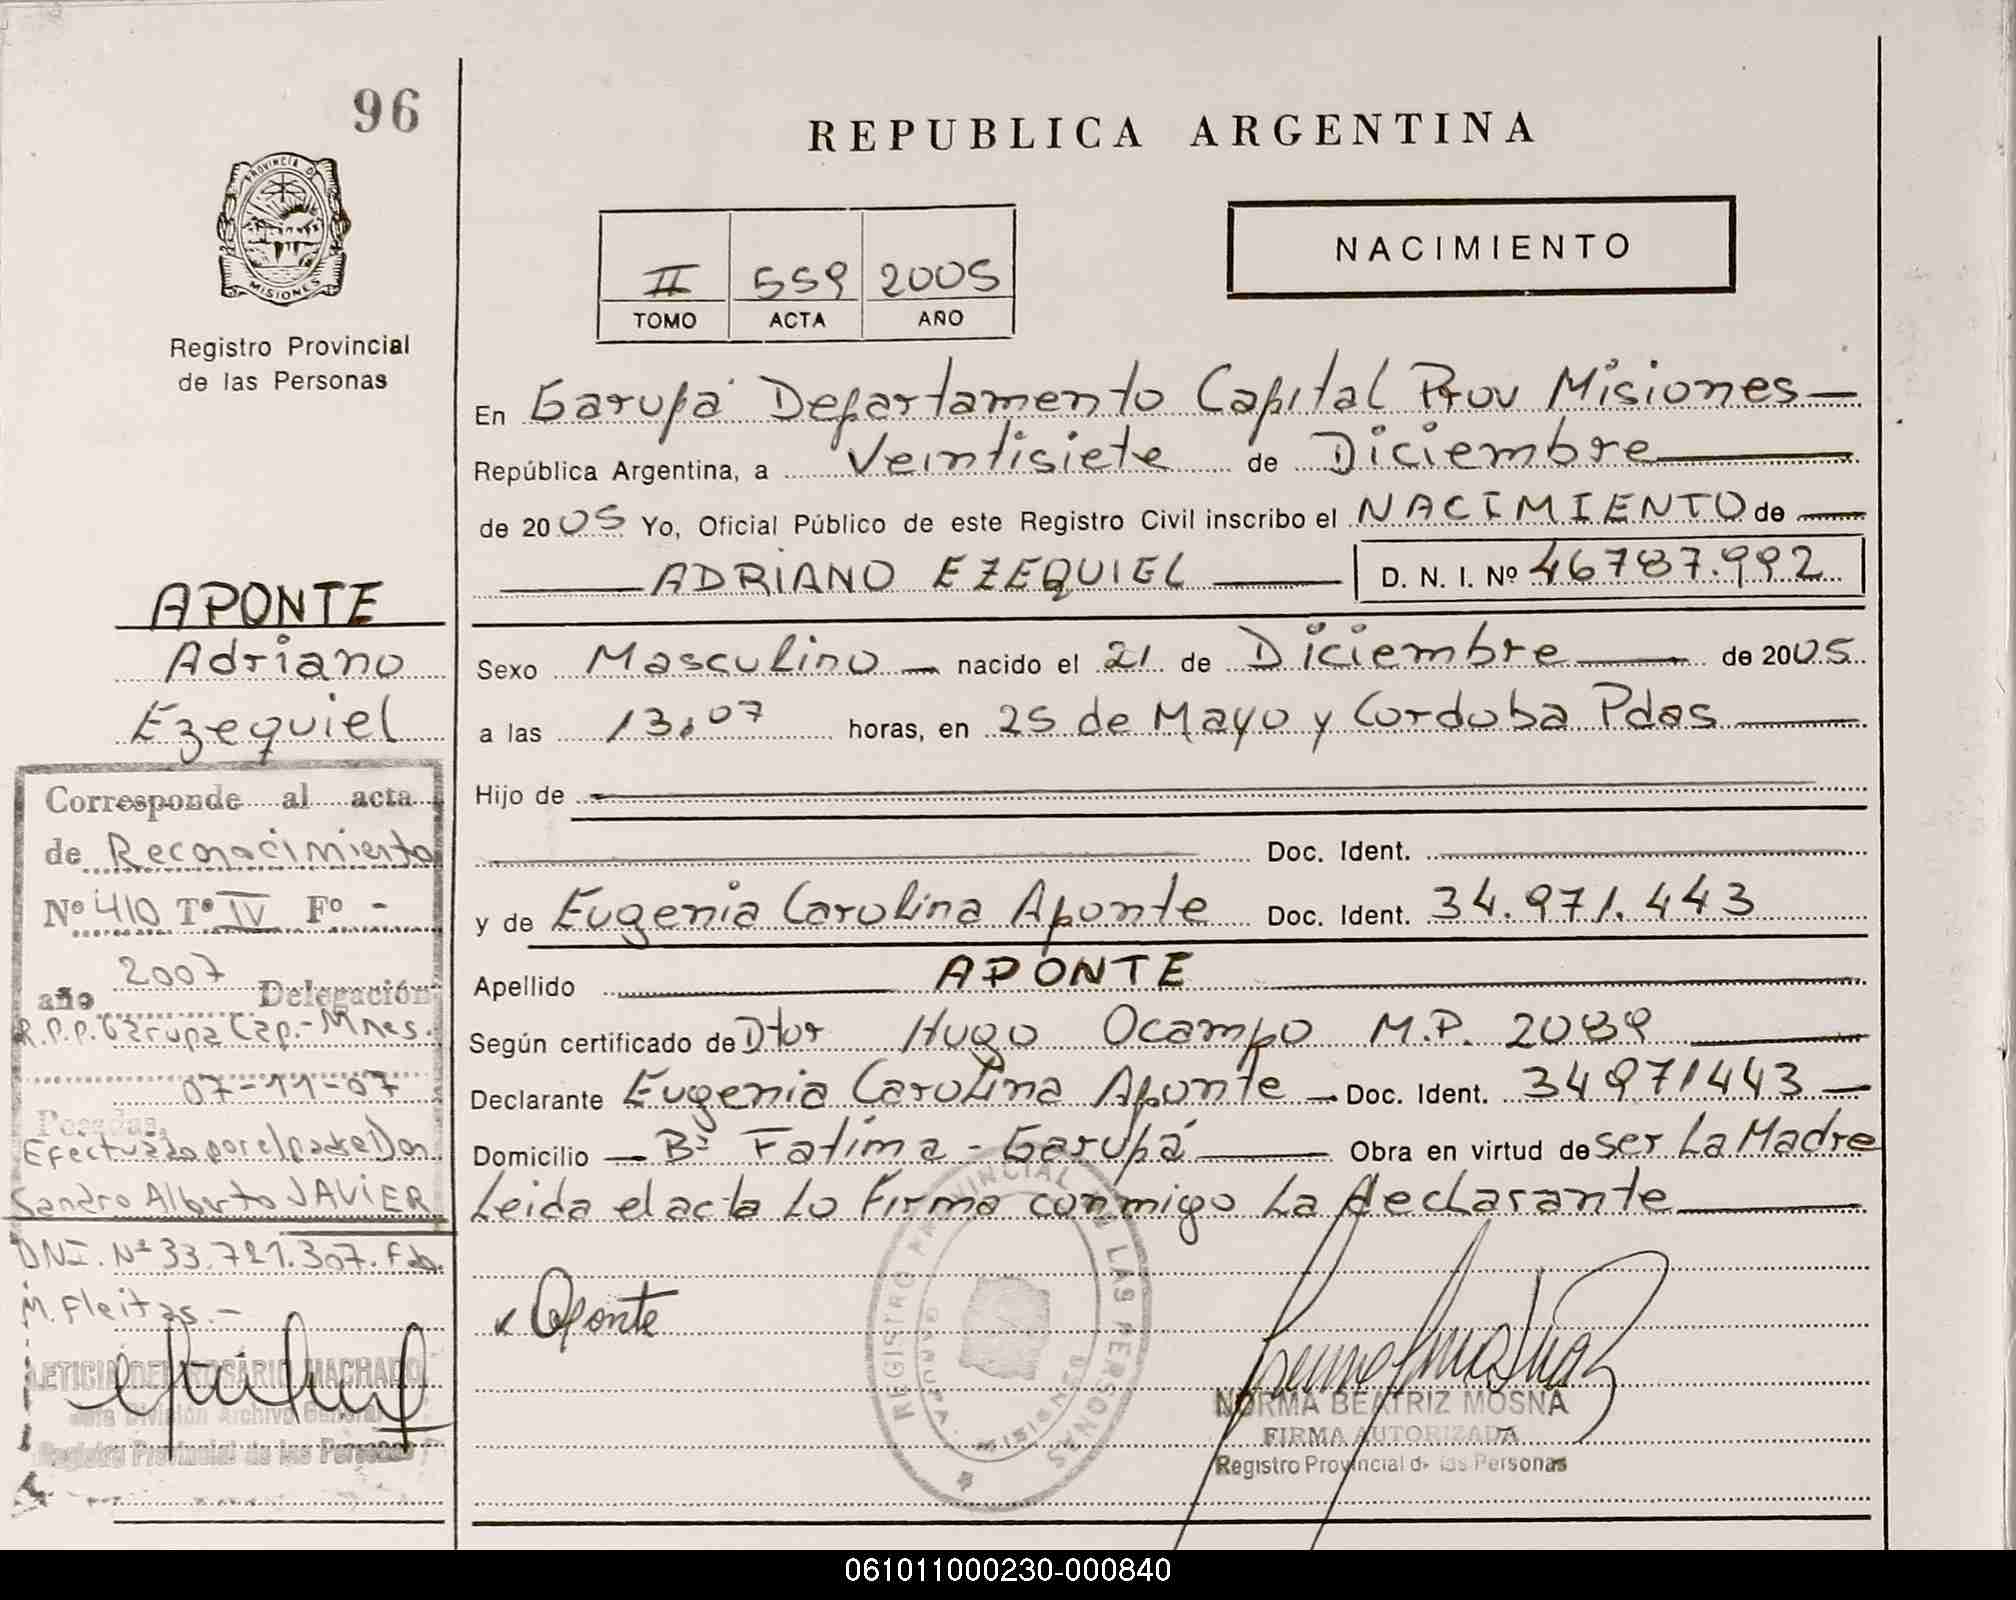 96
PROVINCIA DE
MISIONES
Registro Provincial
de las Personas
REPUBLICA ARGENTINA
II 559 2005
TOMO ACTA AÑO
NACIMIENTO
En Garupá Departamento Capital Prov Misiones
República Argentina, a Veintisiete de Diciembre
de 2005 Yo, Oficial Público de este Registro Civil inscribo el NACIMIENTO de
ADRIANO EZEQUIEL D. N. I. Nº 46787.992
Sexo Masculino nacido el 21 de Diciembre de 2005
a las 13.07 horas, en 25 de Mayo y Cordoba Pdas
Hijo de
Doc. Ident.
y de Eugenia Carolina Aponte Doc. Ident. 34.971.443
Apellido APONTE
Según certificado de Dtor Hugo Ocampo M.P. 2089
Declarante Eugenia Carolina Aponte - Doc. Ident. 34971443
Domicilio - Bº Fatima - Garupá Obra en virtud de ser La Madre
Leida el acta Lo Firma conmigo La declarante
Aponte
REGISTRO PROVINCIAL DE LAS PERSONAS
GARUPA
MISIONES
NORMA BEATRIZ MOSNA
FIRMA AUTORIZADA
Registro Provincial de las Personas
APONTE
Adriano
Ezequiel
Corresponde al acta
de Reconocimiento
Nº 410 Tº IV Fº -
año 2007 Delegación
R.P.P. Garupa Cap.- Mnes.
07-11-07
Posadas,
Efectuado por el padre Don
Sandro Alberto JAVIER
DNI. Nº 33.721.307. Fdo.
M. Fleitas.-
LETICIA DEL ROSARIO MACHADO
Jefa División Archivo General
Registro Provincial de las Personas
061011000230-000840